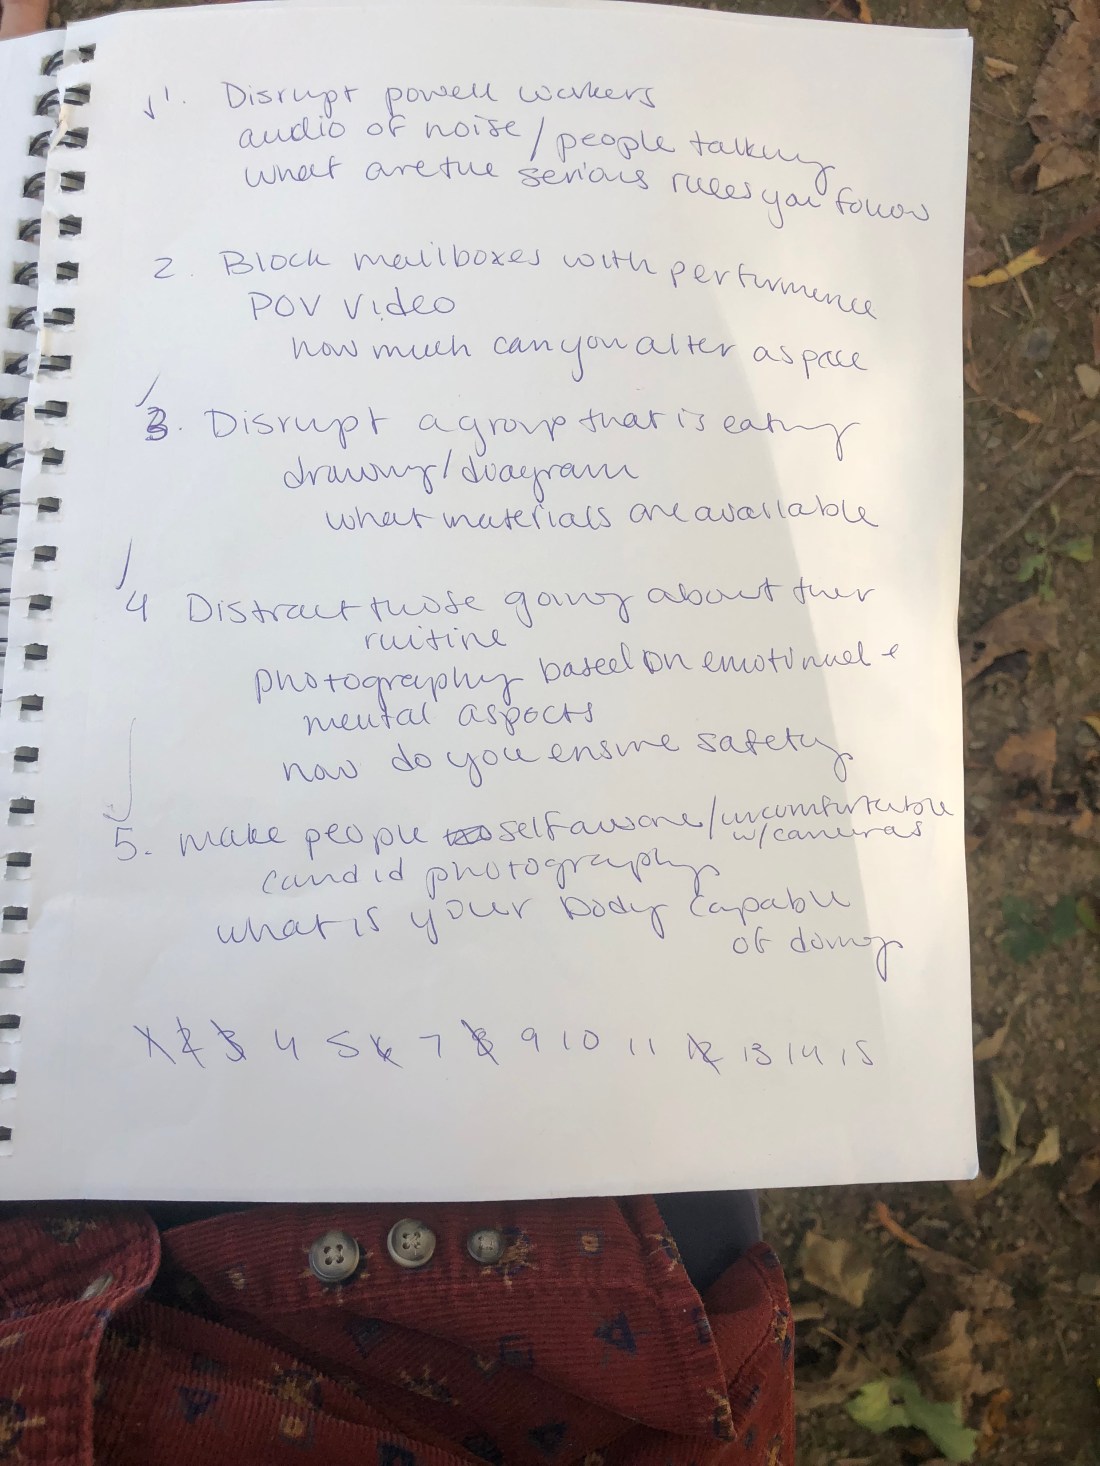 1. Disrupt powell workers
audio of noise / people talking
what are the serious rules you follow
2. Block mailboxes with performence
POV video
how much can you alter a space
3. Disrupt a group that is eating
drawing/diagram
what materials are available
4 Distract those going about ther
ruitine
photography based on emotional +
mental aspects
how do you ensure safety
5. make people self aware/uncomfortable
w/cameras
candid photography
what is your body capable
of doing
1 2 3 4 5 6 7 8 9 10 11 12 13 14 15